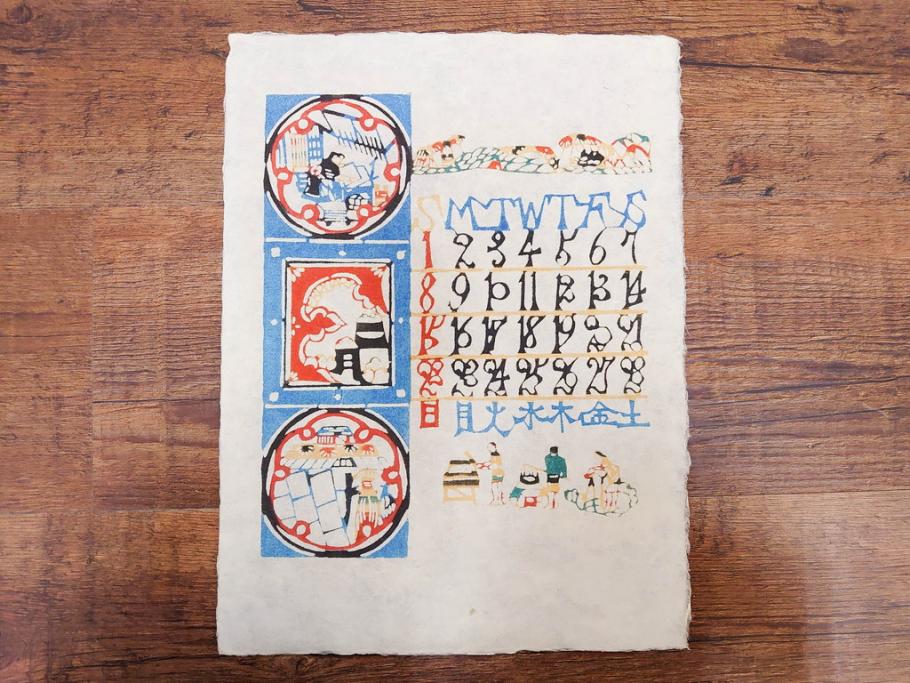 月
S M T W T F S
1 2 3 4 5 6 7
8 9 10 11 12 13 14
15 16 17 18 19 20 21
22 23 24 25 26 27 28
日 月 火 水 木 金 土